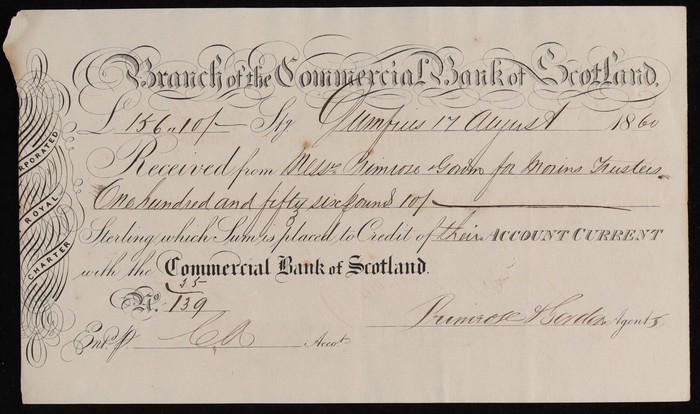 Branch of the Commercial Bank of Scotland.
£ 156 " 10/- Stg Dumfries 17 August 1860
Received from Messrs Primrose & Gordon for Morins Trustees
One hundred and fifty six pounds 10/-
Sterling, which Sum is placed to Credit of their ACCOUNT CURRENT
with the Commercial Bank of Scotland.
35
No. 139
Primrose & Gordon Agents
Entd. Accot.
ORPORATED
ROYAL
CHARTER